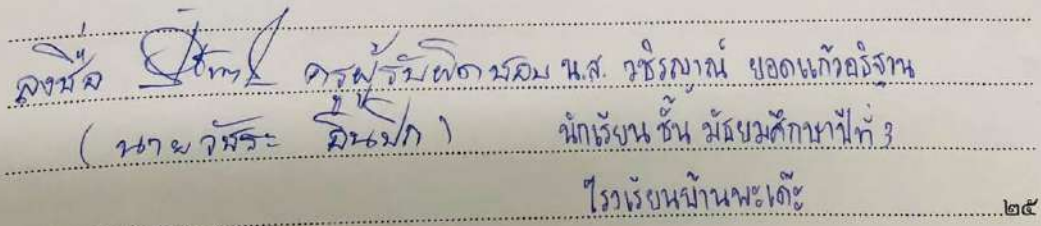 ลงชื่อ ครูผู้รับผิดชอบ น.ส. วชิรญาณ์ ยอดแก้วอธิฐาน
( นายวัชระ อินปัก ) นักเรียน ชั้น มัธยมศึกษาปีที่ 3
โรงเรียนบ้านพะเด๊ะ
๒๕